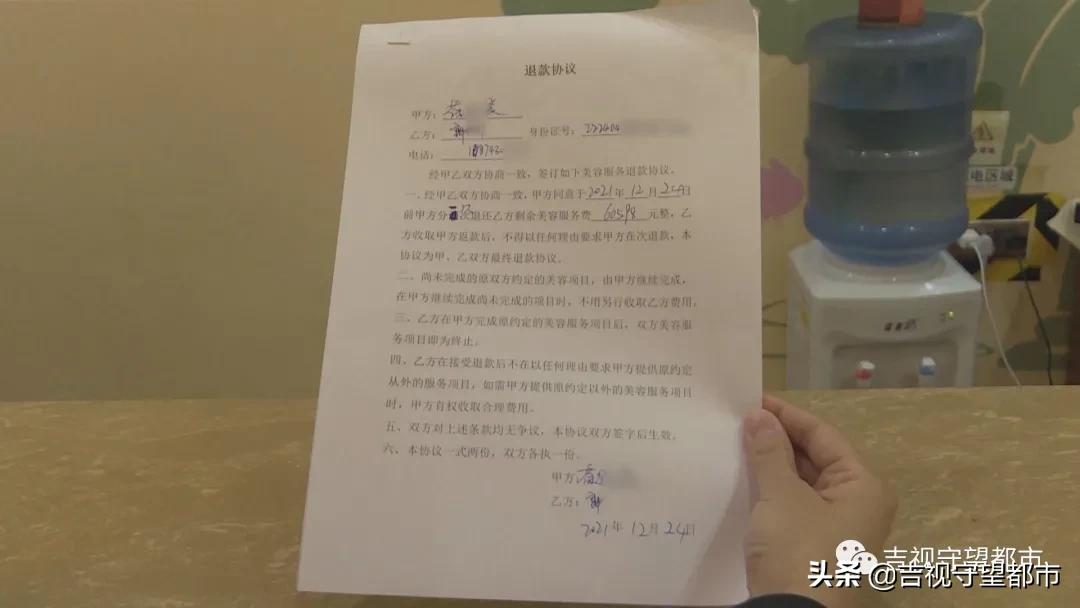 退款协议
甲方：
乙方： 身份证号：222404
电话：
经甲乙双方协商一致，签订如下美容服务退款协议。
一、经甲乙双方协商一致，甲方同意于2021年12月24日
前甲方分 次退还乙方剩余美容服务费60598元整，乙
方收取甲方返款后，不得以任何理由要求甲方在次退款，本
协议为甲、乙双方最终退款协议。
二、尚未完成的原双方约定的美容项目，由甲方继续完成，
在甲方继续完成尚未完成的项目时，不用另行收取乙方费用。
三、乙方在甲方完成原约定的美容服务项目后，双方美容服
务项目即为终止。
四、乙方在接受退款后不在以任何理由要求甲方提供原约定
从外的服务项目，如需甲方提供原约定以外的美容服务项目
时，甲方有权收取合理费用。
五、双方对上述条款均无争议，本协议双方签字后生效。
六、本协议一式两份，双方各执一份。
甲方：
乙方：
2021年12月24日
电区域
吉视守望都市
头条 @吉视守望都市